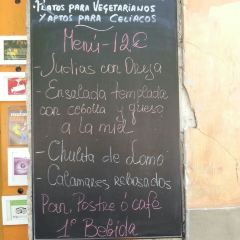 Platos para Vegetarianos
y aptos para Celiacos
Menú-12€
-Judias con Oreja
-Ensalada templada
con cebolla y queso
a la miel
-Chulita de Lomo
-Calamares rebosados
Pan, Postre ó café
1ª Bebida